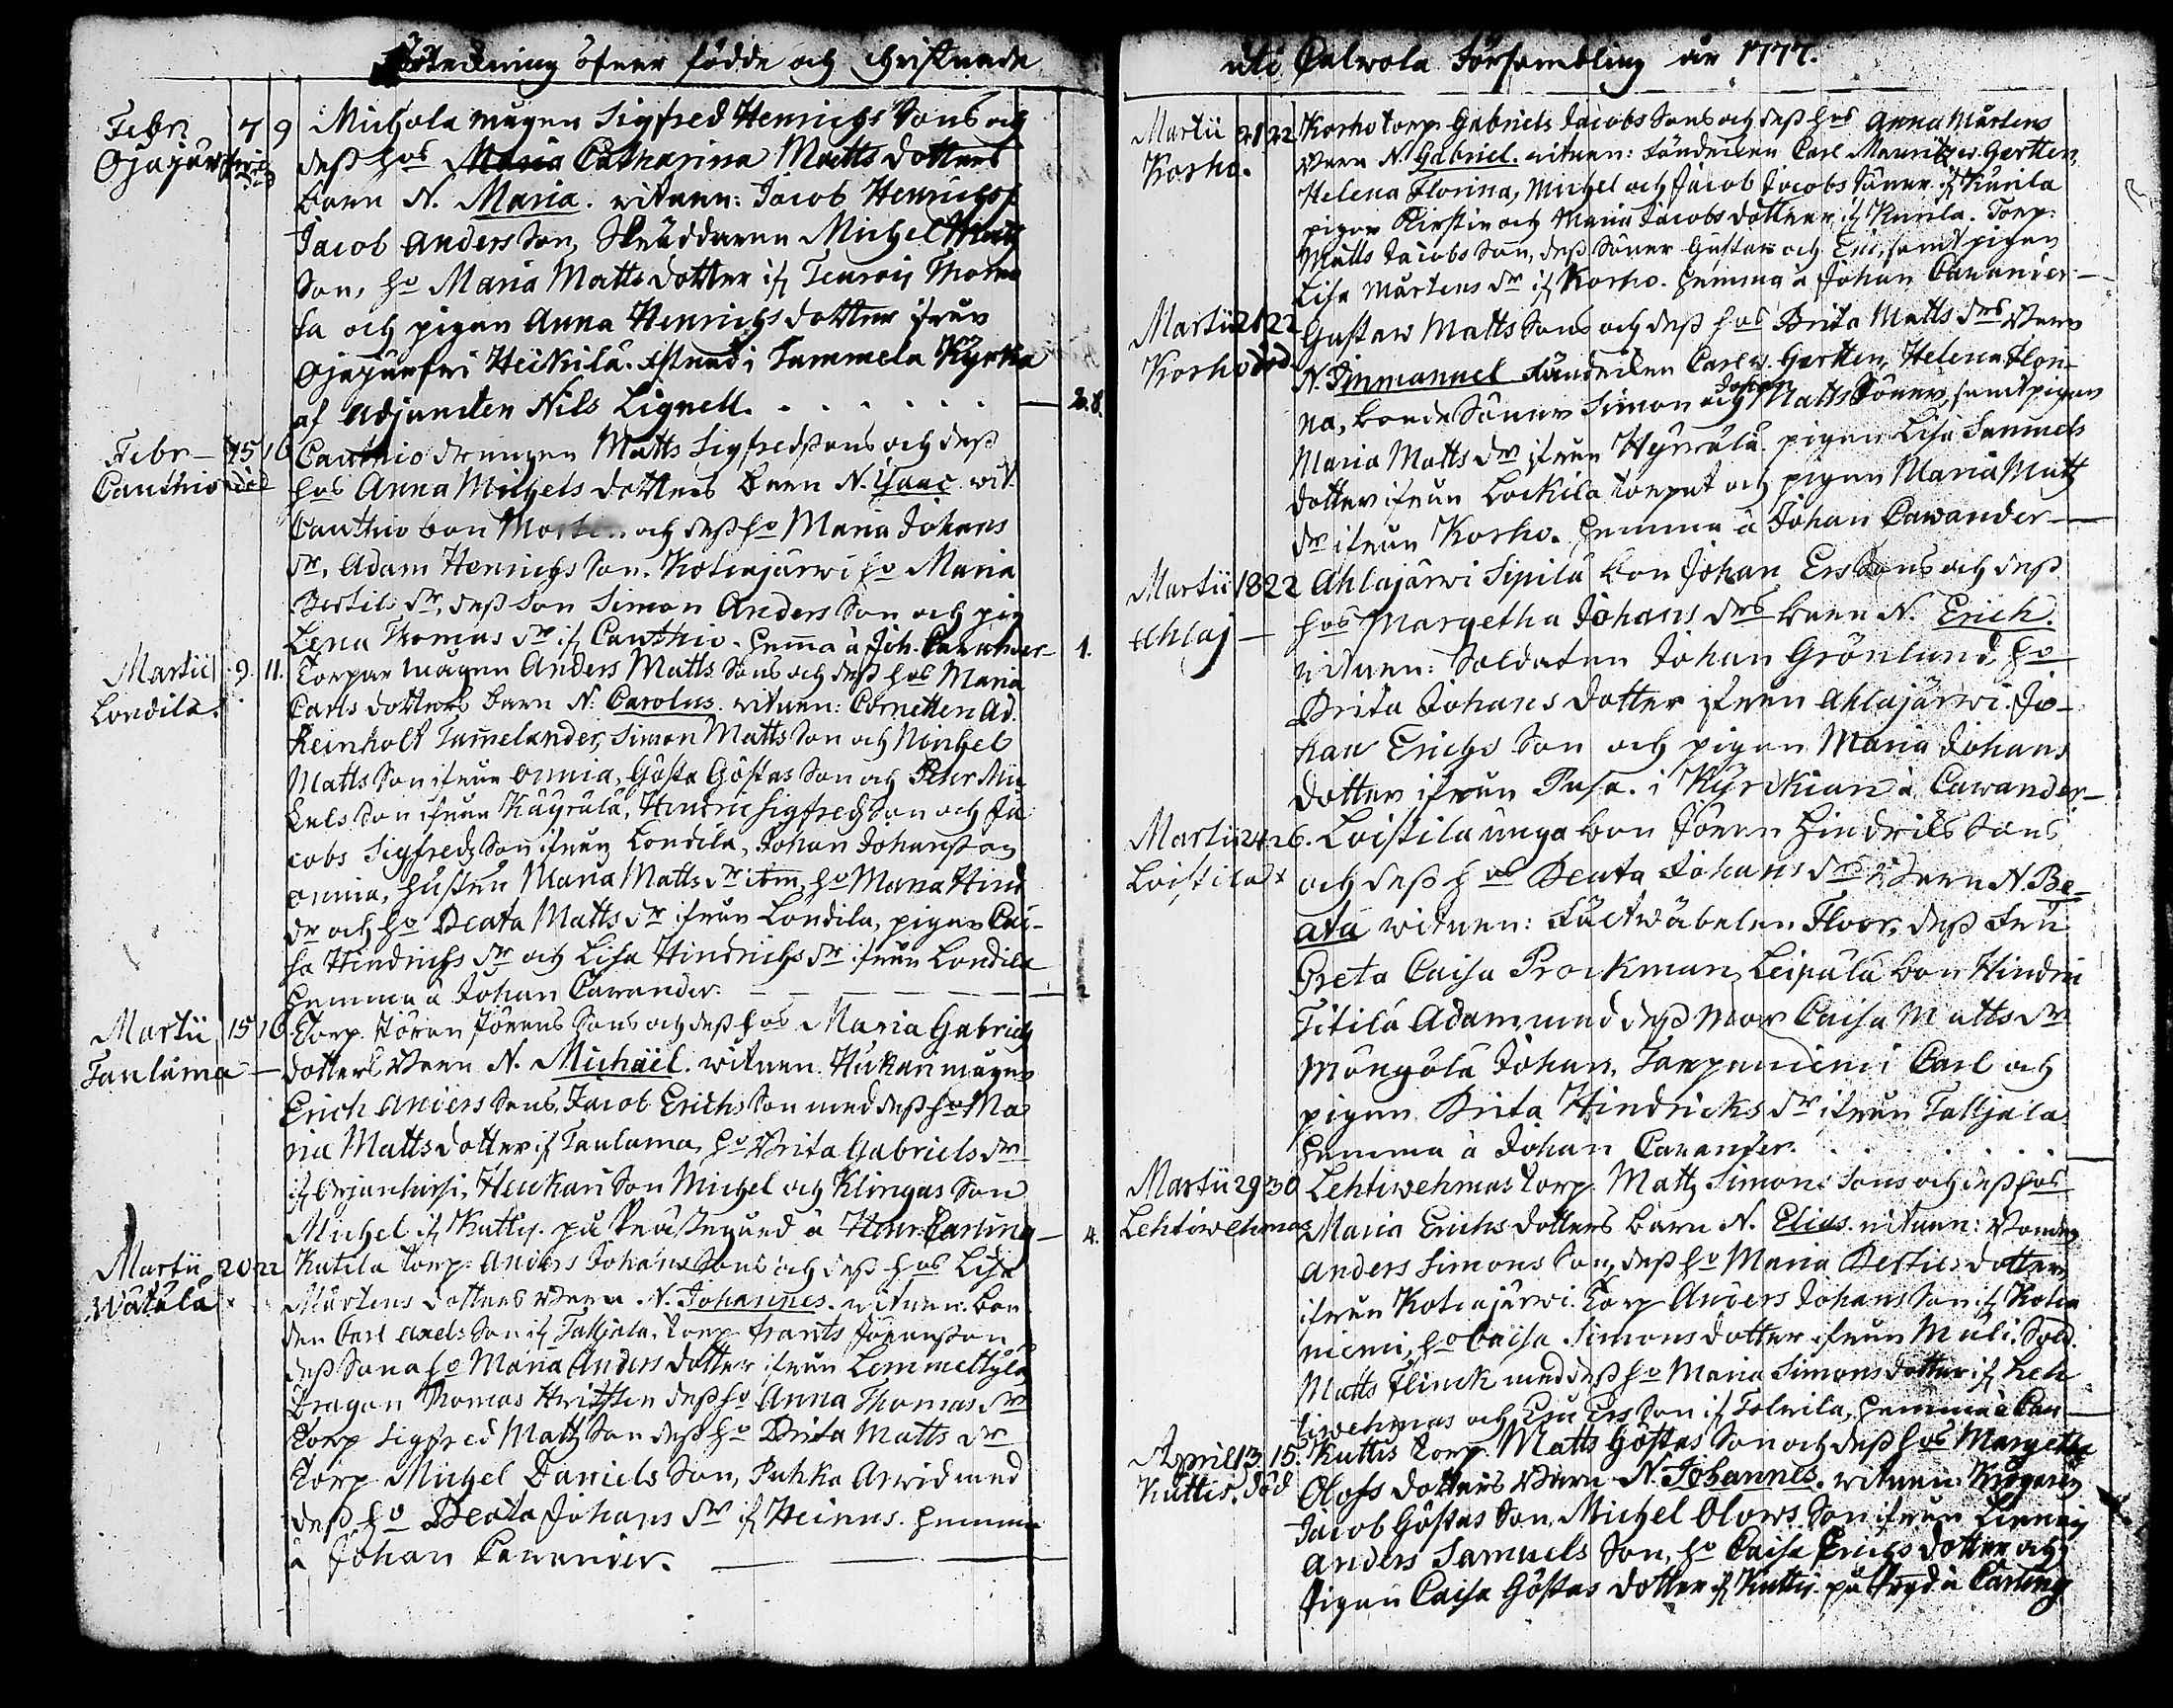 Förteckning öfver födde och Christnade
Febr: 7 9 Michola mågen Sigfred Henrichs Sons och
Ojajärfwi död deß hos Catharina Matts dotters
barn N. Maria. witnen: Jacob Henrichs
Jacob Anders Son, Skräddaren Michel Matts
Son, ho Maria Matts dotter if
och pigan Anna Henrichs dotter ifrån
Ojajärfwi Heikilä. i Tammela Kyrka
af Adjuncten Nils Lignell. 2.8.
Febr 15 16 Cauthio drengen Matts Sigfredssons och deß
Cauthio död hos Anna Michels dotters Barn N. Isaac. wit.
Cauthio bon och deß ho Maria Johans
dr, Adam Henrichs Son. Kotiajärwi ho Maria
Bertils dr, deß Son Simon Anders Son och pig
Lena Thomas dr if Cauthio. hemma à Joh. Cawander 1.
Martii 9. 11. Torpar mågen Anders Matts Sons och deß hos Maria
Londila. Carls dotters barn N: Carolus. witnen: Cornetten Ad.
Reinholt Tamelander, Simon Matts Son och Michel
Matts Son ifrån Onnia, Gösta Göstas Son och Peter Mic
kels Son ifrån Käyrälä, Hendric Sigfreds Son och Ja
cobs Sigfreds Son ifrån Londila, Johan Johansson
Onnia, hustru Maria Matts dr item, ho Maria Hind
dr och ho Beata Matts dr ifrån Londila, pigan Cai-
sa Hindrichs dr och Lisa Hindrichs dr ifrån Londila
hemma à Johan Cawander.
Martii 15 16 Torp. Jöran Jörans Sons och deß hos Maria Gabriels
Taulama dotters Barn N. Michaël. witnen. Hukari mågen
Erich Anders Sons, Jacob Erichs Son med deß ho Ma
ria Matts dotter if Taulama, ho Brita Gabriels dr
if Orjanhirsi, Heukari Son Michel och Klingas Son
Michel if Kuttis. på Prästegård à Henr: Carling 4.
Martii 20 22 Kutila Torp. Anders Johans Sons och deß hos Lisa
Wätälä Mårtens dotters Barn N. Johannes. witnen: bon
den Carl Axels Son if Taljala, torp. Frants Jöransson
deß Sona ho Maria Anders dotter ifrån Lemmettylä
Dragon Thomas deß ho Anna Thomas dr
Torp Sigfred Matts Son deß ho Brita Matts dr
Torp Michel Daniels Son, Puhka Arwid med
deß ho Beata Johans dr if Heinus. hemma
à Johan Cawander.
uti Calwola Församdling år 1777.
Martii 21 22 Korho torp. Gabriels Jacobs Sons och deß hos Anna Mårtens
Korho. Barn N. Gabriel. witnen: Fändriken Carl Mauritz w. Gertten,
Helena Florina, Michel och Jacob Jacobs Söner if Kurila
pigor Kirstin och Maria Jacobs dotter if Kurila. Torp:
Matts Jacobs Son, deß Söner Gustaw och Eric, samt pigan
Lisa Mårtens dr if Korho. hemma à Johan Cawander
Martii 21 22 Gustaw Matts Sons och deß hos Brita Matts drs Barn
Korho död N. Immanuel Fändriken Carl w. Gertten, Helena Flori-
na, bonde Söner Simon och Johan Matts Söner, samt pigan
Maria Matts dr ifrån Hyrrälä pigan Lisa Samuels
dotter ifrån Lockila torpet och pigan Maria Matts
dr ifrån Korho. hemma à Johan Cawander
Martii 18 22 Ahlajärwi Sipilä bon Johan Ers Sons och deß
Ahlaj hos Margetha Johans drs barn N. Erich.
witnen: Soldaten Johan Grönlund, ho
Brita Johans dotter ifrån Ahlajärwi. Jo-
han Erichs Son och pigan Maria Johans
dotter ifrån Pusa. i Kyrckian à Cawander
Martii 24 26. Loistila unga bon Jöran Hindrics Sons
Loistila x och deß hos Beata Johans drs Barn N. Be-
ata witnen: Fältwäbelen Floor, deß Fru
Greta Caisa Prockman, Leipälä bon Hindric
Titilä Adam, med deß mor Caisa Matts dr
Mongola Johan, Tarpenniemi Carl och
pigan Brita Hindricks dr ifrån Taljala
hemma à Johan Cawander.
Martii 29 30 Lehtiwehmas torp. Matts Simons Sons och deß hos
Lehtiwehmas Maria Erichs dotters barn N. Elias. witnen: Bonden
Anders Simons Son, deß ho Maria Bertils dotter,
ifrån Kotiajärwi. Torp Anders Johans Son if Kotia
niemi, ho Caisa Simons dotter ifrån Muli. Sold.
Matts Flinck med deß ho Maria Simons dotter if Leh
tiwehmas och Eric Ers Son if Tolwila, hemma à Caw
April 13 15. Kuttis torp. Matts Göstas Son och deß hos Margetha
Kuttis. död Olofs dotters Barn N. Johannes. witnen:
Jacob Göstas Son, Michel Olows Son ifrån
Anders Samuels Son, ho Caisa Erichs dotter och
Pigan Caisa Göstas dotter if Kuttis. på à Carling